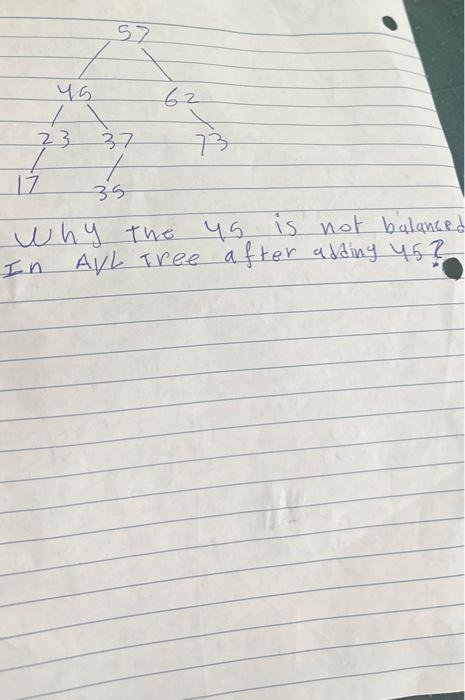 57
45 62
23 37 73
17 35
Why the 45 is not balanced
In AVL Tree after adding 45?